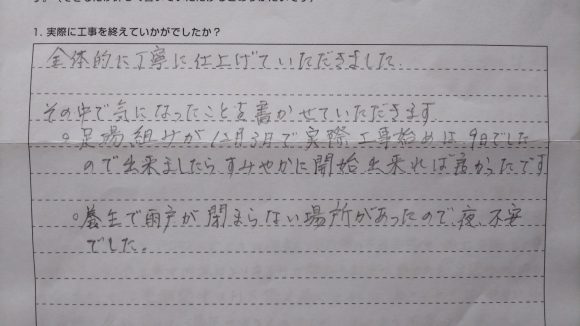 1. 実際に工事を終えていかがでしたか?
全体的に丁寧に仕上げていただきました.
その中で気になったことを書かせていただきます
○足場組みが12月3日で実際工事始めは9日でした
ので出来ましたらすみやかに開始出来れば良かったです
○養生で雨戸が閉まらない場所があったので夜、不安
でした。